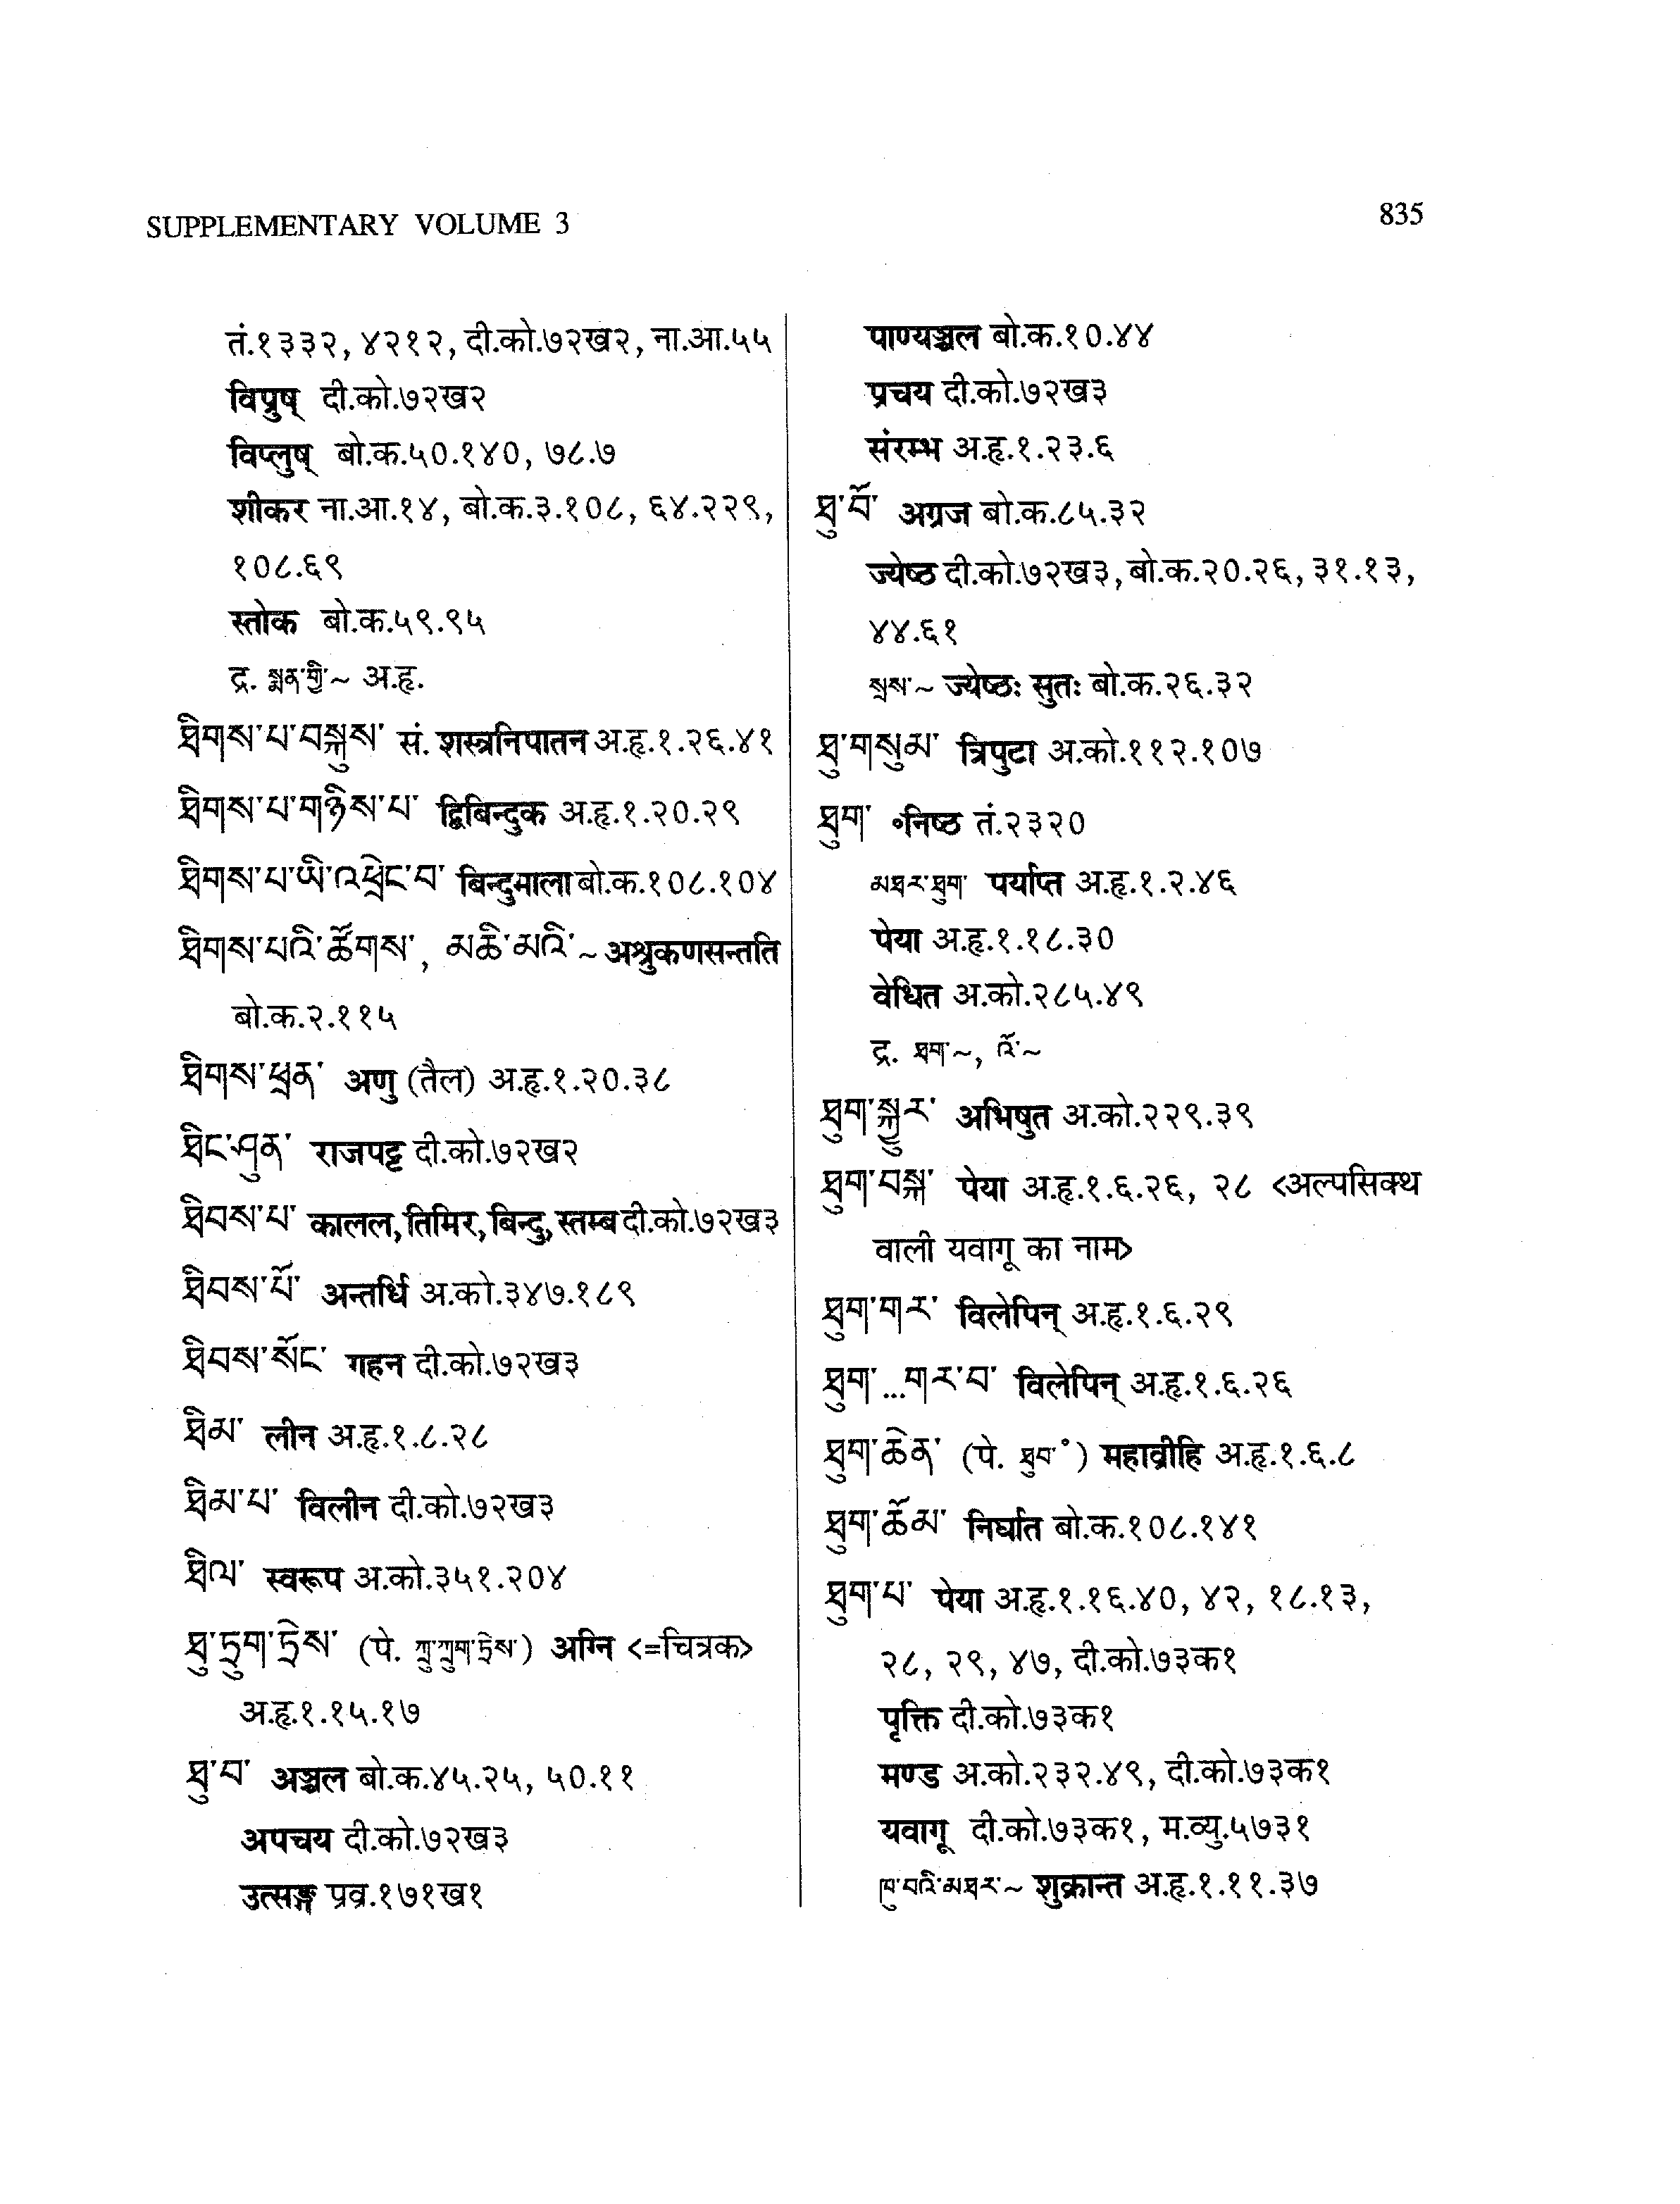 SUPPLEMENTARY VOLUME 3
835
तं.१३३२, ४२१२, दी.को.७२ख२, ना.आ.५५
विप्रुष् दी.को.७२ख२
विप्लुष् बो.क.५०.१४०, ७८.७
शीकर ना.आ.१४, बो.क.३.१०८, ६४.२२९,
१०८.६९
स्तोक बो.क.५९.९५
द्र. སྨན་གྱི་~ अ.हृ.
ཐིགས་པ་བསྐུས་ सं. शस्त्रनिपातन अ.हृ.१.२६.४१
ཐིགས་པ་གཉིས་པ་ द्विबिन्दुक अ.हृ.१.२०.२९
ཐིགས་པ་ཡི་འཕྲེང་བ་ बिन्दुमाला बो.क.१०८.१०४
ཐིགས་པའི་ཚོགས་, མཆི་མའི་~ अश्रुकणसन्तति
बो.क.२.११५
ཐིགས་ཕྲན་ अणु (तैल) अ.हृ.१.२०.३८
ཐིང་ཤུན་ राजपट्ट दी.को.७२ख२
ཐིབས་པ་ कालल, तिमिर, बिन्दु, स्तम्ब दी.को.७२ख३
ཐིབས་པོ་ अन्तर्धि अ.को.३४७.१८९
ཐིབས་སོང་ गहन दी.को.७२ख३
ཐིམ་ लीन अ.हृ.१.८.२८
ཐིམ་པ་ विलीन दी.को.७२ख३
ཐིལ་ स्वरूप अ.को.३५१.२०४
ཐུ་ཏྲུག་ཏྲེས་ (पे. ཀྲུ་ཀྲུག་ཏྲེས་) अग्नि <=चित्रक>
अ.हृ.१.१५.१७
ཐུ་བ་ अञ्चल बो.क.४५.२५, ५०.११
अपचय दी.को.७२ख३
उत्सङ्ग प्रव्र.१७१ख१
पाण्यञ्चल बो.क.१०.४४
प्रचय दी.को.७२ख३
संरम्भ अ.हृ.१.२३.६
ཐུ་བོ་ अग्रज बो.क.८५.३२
ज्येष्ठ दी.को.७२ख३, बो.क.२०.२६, ३१.१३,
४४.६१
སྲས་~ ज्येष्ठः सुतः बो.क.२६.३२
ཐུ་གསུམ་ त्रिपुटा अ.को.११२.१०७
ཐུག་ ॰निष्ठ तं.२३२०
མཐར་ཐུག་ पर्याप्त अ.हृ.१.२.४६
पेया अ.हृ.१.१८.३०
वेधित अ.को.२८५.४९
द्र. ཐག་~, འོ་~
ཐུག་སྐྱུར་ अभिषुत अ.को.२२९.३९
ཐུག་བསྐ་ पेया अ.हृ.१.६.२६, २८ <अल्पसिक्थ
वाली यवागू का नाम>
ཐུག་གར་ विलेपिन् अ.हृ.१.६.२९
ཐུག་...གར་བ་ विलेपिन् अ.हृ.१.६.२६
ཐུག་ཆེན་ (पे. ཐུབ་°) महाव्रीहि अ.हृ.१.६.८
ཐུག་ཆོམ་ निर्घात बो.क.१०८.१४१
ཐུག་པ་ पेया अ.हृ.१.१६.४०, ४२, १८.१३,
२८, २९, ४७, दी.को.७३क१
पृक्ति दी.को.७३क१
मण्ड अ.को.२३२.४९, दी.को.७३क१
यवागू दी.को.७३क१, म.व्यु.५७३१
ཁུ་བའི་མཐར་~ शुक्रान्त अ.हृ.१.११.३७